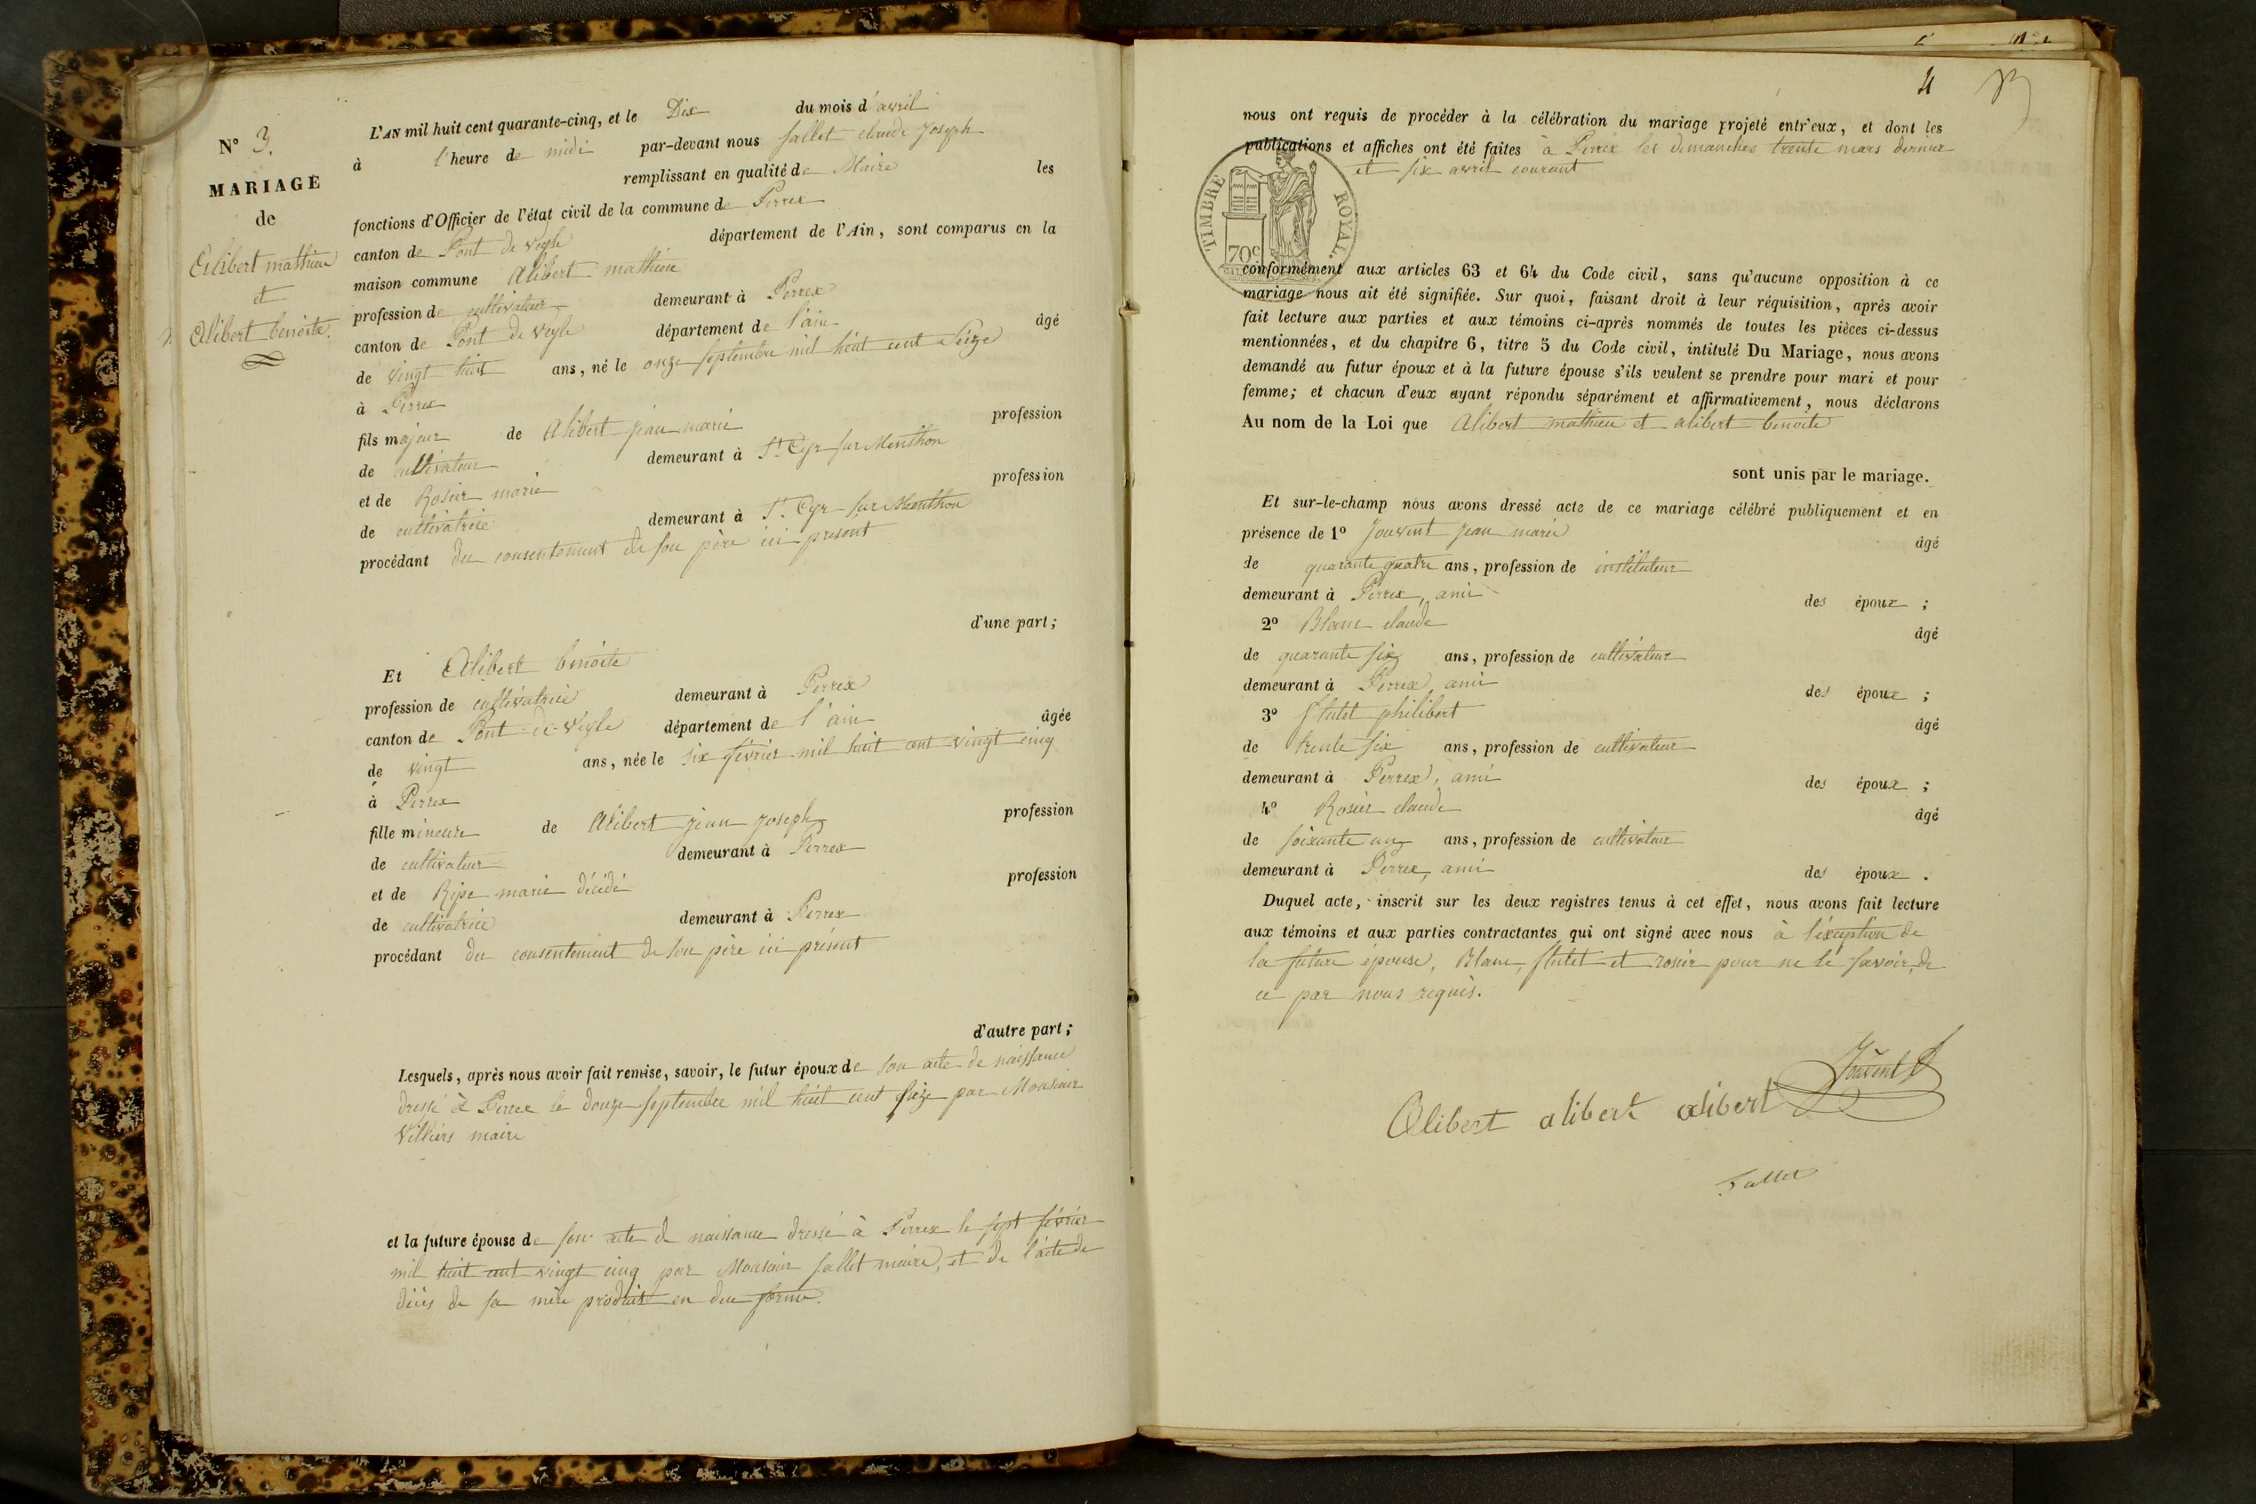 N° 3.
MARIAGE
de
Alibert mathieu
et
Alibert benoite.
L'AN mil huit cent quarante-cinq, et le Dix du mois d'avril
à l'heure de midi par-devant nous Sallet claude Joseph
remplissant en qualité de Maire les
fonctions d'Officier de l'état civil de la commune de Perrex
canton de Pont de veyle département de l'Ain, sont comparus en la
maison commune Alibert mathieu
profession de cultivateur demeurant à Perrex
canton de Pont de veyle département de l'ain âgé
de vingt huit ans, né le onze septembre mil huit cent seize
à Perrex
fils majeur de Alibert jean marie profession
de cultivateur demeurant à St Cyr sur Menthon
et de Rosier marie profession
de cultivatrice demeurant à St Cyr sur Menthon
procédant du consentement de son père ici present
d'une part;
Et Alibert benoite
profession de cultivatrice demeurant à Perrex
canton de Pont-de-Veyle département de l'ain âgée
de vingt ans, née le six février mil huit cent vingt cinq
à Perrex
fille mineure de Alibert jean joseph profession
de cultivateur demeurant à Perrex
et de Ripe marie décédé profession
de cultivatrice demeurant à Perrex
procédant du consentement de son père ici présent
d'autre part;
Lesquels, après nous avoir fait remise, savoir, le futur époux de son acte de naissance
dressé à Perrex le douze septembre mil huit cent seize par Monsieur
Villiers maire
et la future épouse de son acte de naissance dressé à Perrex le sept février
mil huit cent vingt cinq par Monsieur Sallet maire, et de l'acte de
décès de sa mère produit en due forme.
4
nous ont requis de procéder à la célébration du mariage projeté entr'eux, et dont les
publications et affiches ont été faites à Perrex les dimanches trente mars dernier
et six avril courant
TIMBRE ROYAL.
70c
conformément aux articles 63 et 64 du Code civil, sans qu'aucune opposition à ce
mariage nous ait été signifiée. Sur quoi, faisant droit à leur réquisition, après avoir
fait lecture aux parties et aux témoins ci-après nommés de toutes les pièces ci-dessus
mentionnées, et du chapitre 6, titre 5 du Code civil, intitulé Du Mariage, nous avons
demandé au futur époux et à la future épouse s'ils veulent se prendre pour mari et pour
femme; et chacun d'eux ayant répondu séparément et affirmativement, nous déclarons
Au nom de la Loi que Alibert mathieu et alibert benoite
sont unis par le mariage.
Et sur-le-champ nous avons dressé acte de ce mariage célébré publiquement et en
présence de 1° Jouvent jean marie âgé
de quarante quatre ans, profession de instituteur
demeurant à Perrex, ami des époux ;
2° Blanc claude âgé
de quarante six ans, profession de cultivateur
demeurant à Perrex, ami des époux ;
3° philibert âgé
de trente six ans, profession de cultivateur
demeurant à Perrex, ami des époux ;
4° Rosier claude âgé
de soixante un ans, profession de cultivateur
demeurant à Perrex, ami des époux .
Duquel acte, inscrit sur les deux registres tenus à cet effet, nous avons fait lecture
aux témoins et aux parties contractantes qui ont signé avec nous à l'exception de
la future épouse, Blanc, et rosier pour ne le savoir, de
ce par nous requis.
Jouvent
Alibert alibert alibert
Sallet